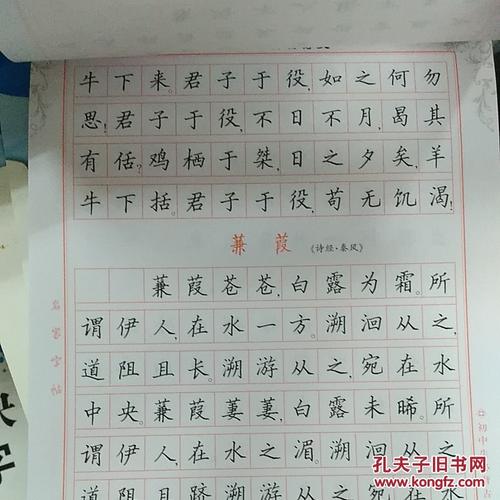 牛下来。君子于役,如之何勿
思!君子于役,不日不月,曷其
有佸。鸡栖于桀,日之夕矣,羊
牛下括。君子于役,苟无饥渴!
蒹葭 《诗经·秦风》
蒹葭苍苍,白露为霜。所
谓伊人,在水一方。溯洄从之,
道阻且长。溯游从之,宛在水
中央。蒹葭萋萋,白露未晞。所
谓伊人,在水之湄。溯洄从之,
道阻且跻。溯游从之,宛在水
名家字帖
初中
孔夫子旧书网
www.kongfz.com